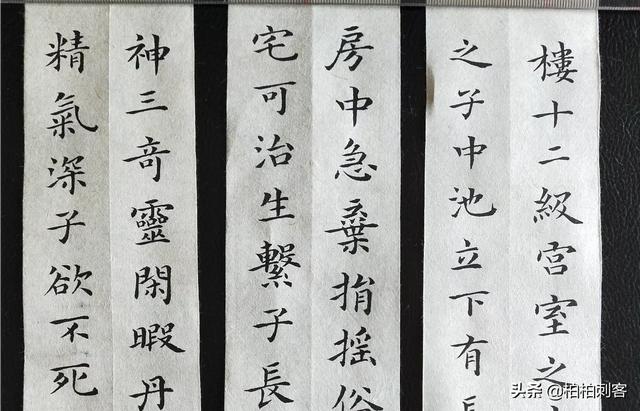 樓十二級宮室之
之子中池立下有長
房中急棄捐搖俗
宅可治生繫子長
神三竒靈閑暇丹
精氣深子欲不死
头条 @柏柏刺客